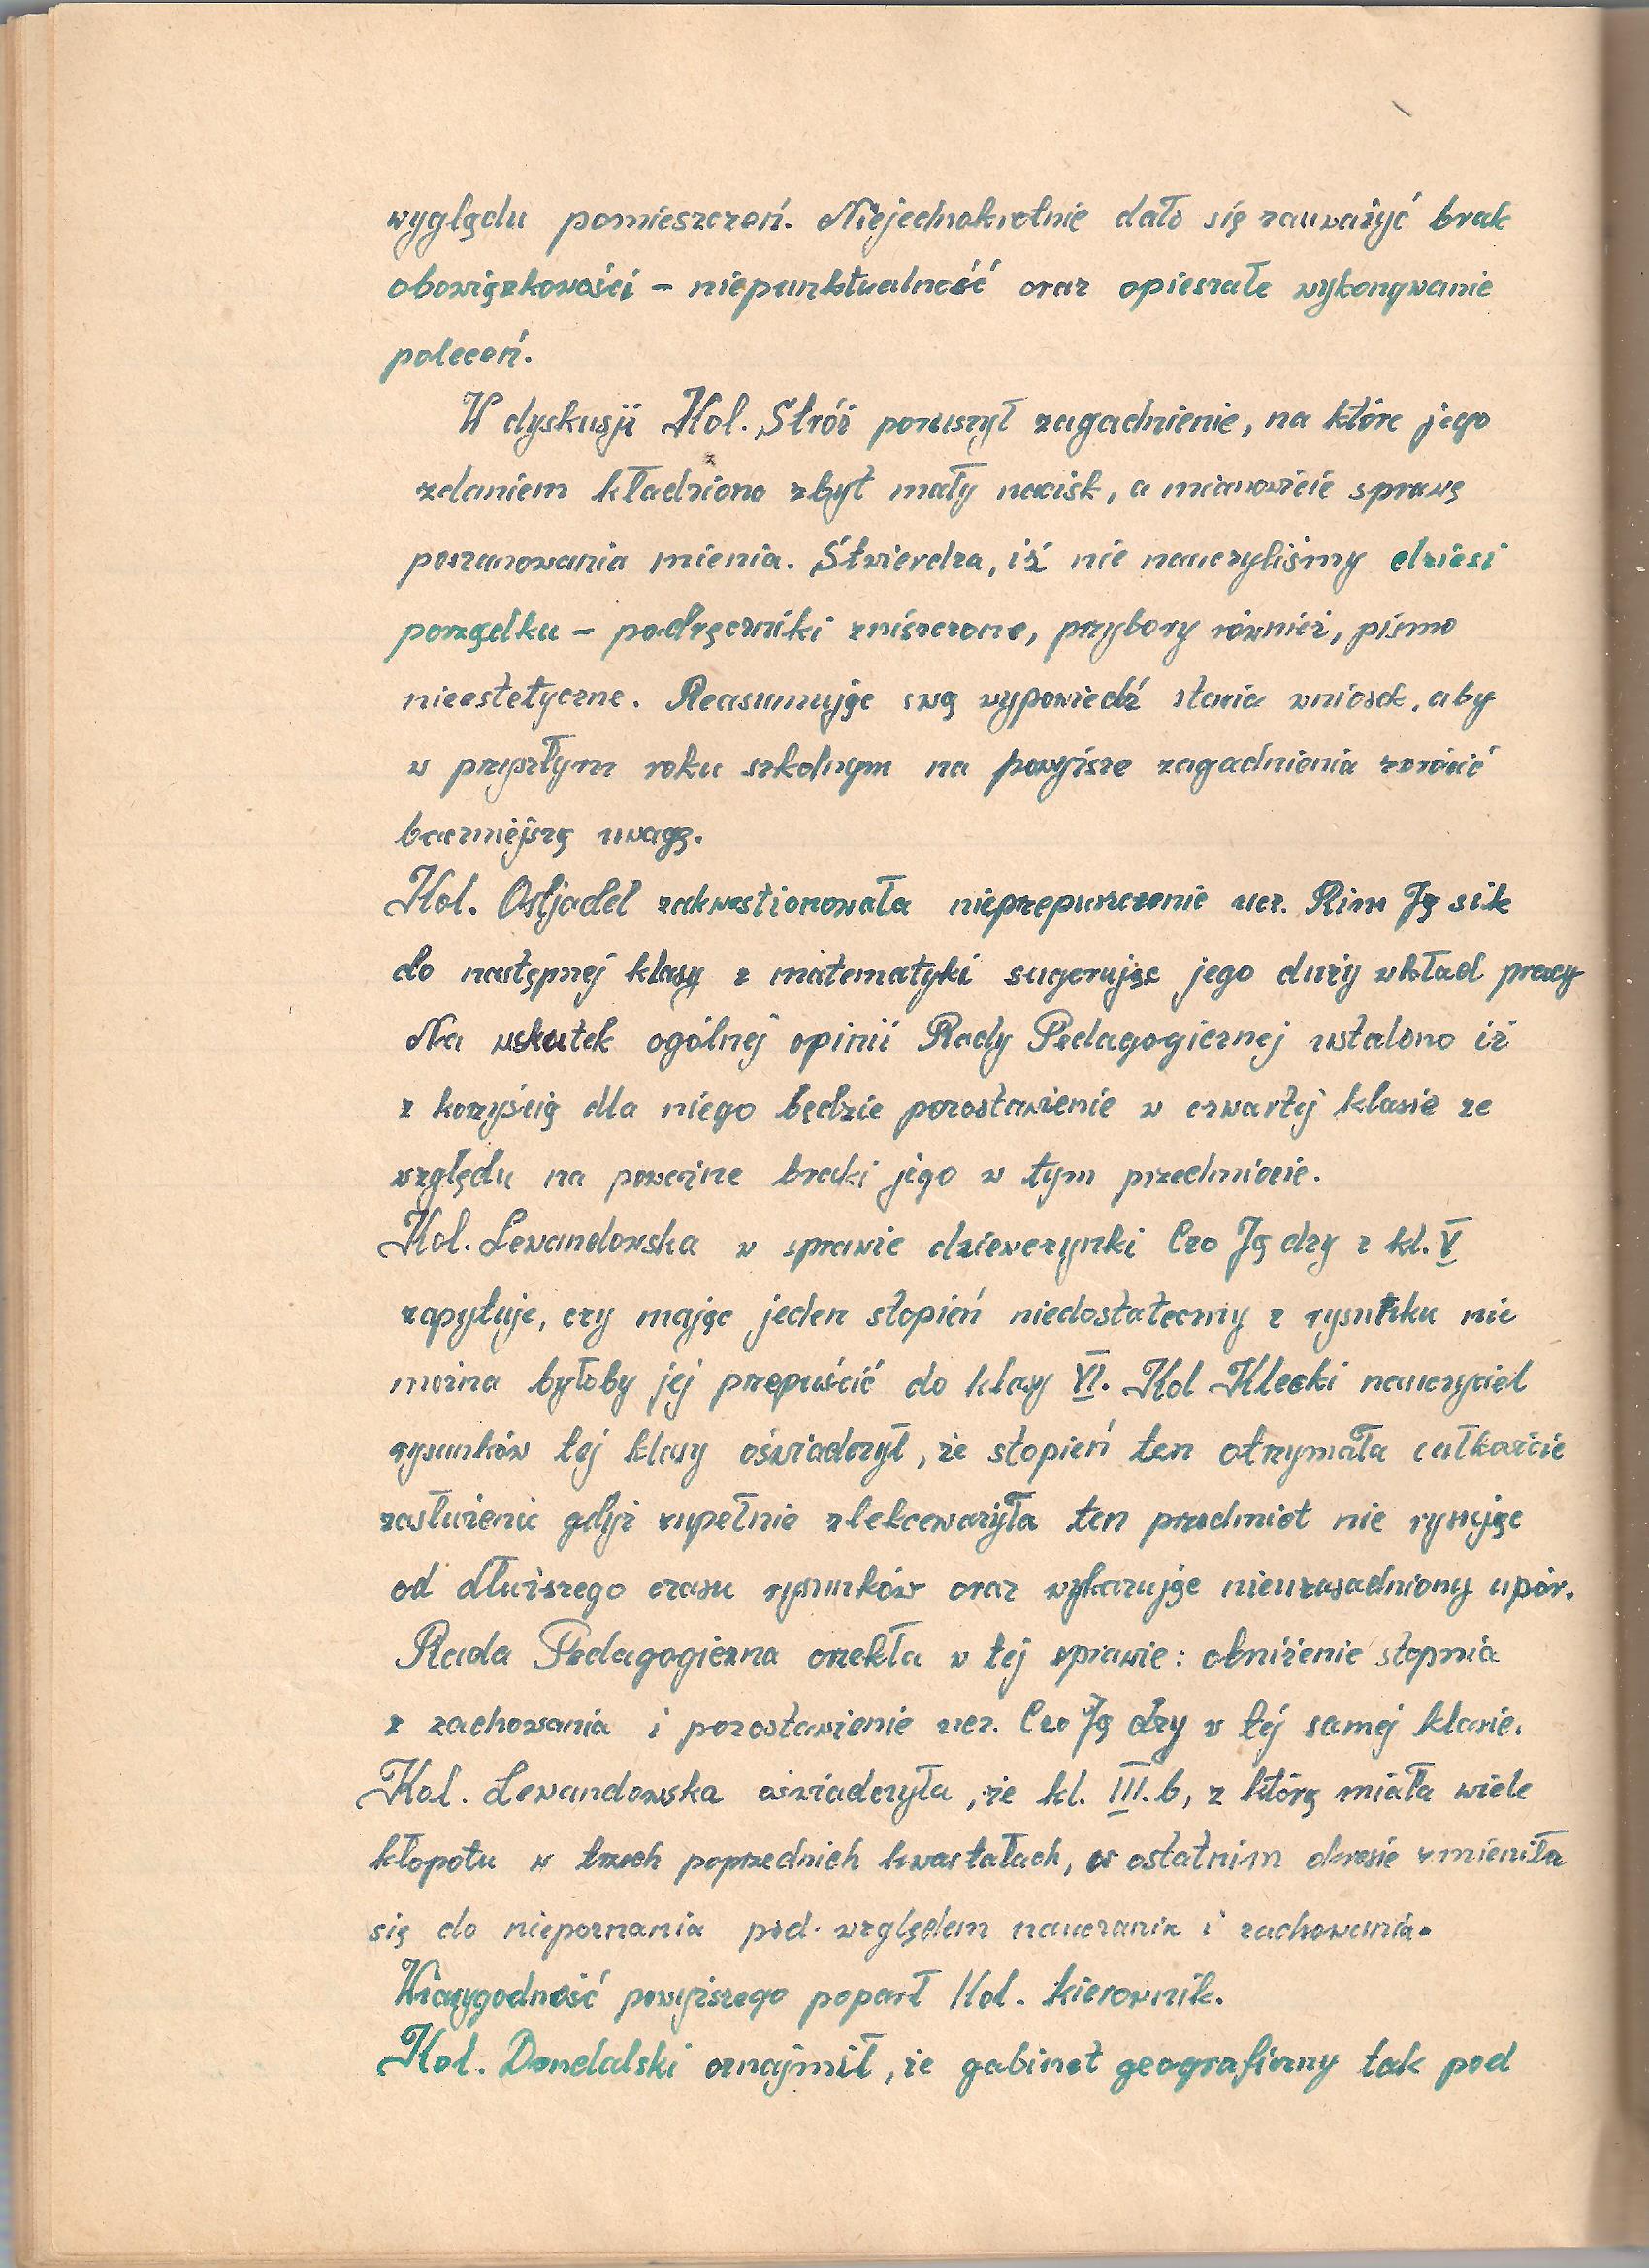 wyglądu pomieszczeń. Niejednokrotnie dało się zauważyć brak
obowiązkowości – niepunktualność oraz opieszałe wykonywanie
poleceń.
W dyskusji Kol. Stróż poruszył zagadnienie, na które jego
zdaniem kładziono zbyt mały nacisk, a mianowicie sprawę
poszanowania mienia. Stwierdza, iż nie nauczyliśmy dzieci
porządku – podręczniki zniszczone, przybory również, pismo
nieestetyczne. Reasumując swą wypowiedź stawia wniosek, aby
w przyszłym roku szkolnym na powyższe zagadnienia zwrócić
baczniejszą uwagę.
Kol. Ostjadel zakwestionowała nieprzepuszczenie ucz. Rim Ję sik
do następnej klasy z matematyki sugerując jego duży wkład pracy
Na wskutek ogólnej opinii Rady Pedagogicznej ustalono iż
z korzyścią dla niego będzie pozostawienie w czwartej klasie ze
względu na poważne braki jego w tym przedmiocie.
Kol. Lewandowska w sprawie dziewczynki Czo Ję dzy z kl. V
zapytuje, czy mając jeden stopień niedostateczny z rysunku nie
można byłoby jej przepuścić do klasy VI. Kol Klecki nauczyciel
rysunków tej klasy oświadczył, że stopień ten otrzymała całkowicie
zasłużenie gdyż zupełnie zlekceważyła ten przedmiot nie rysując
od dłuższego czasu rysunków oraz wykazując nieuzasadniony upór.
Rada Pedagogiczna orzekła w tej sprawie: obniżenie stopnia
z zachowania i pozostawienie ucz. Czo Ję dzy w tej samej klasie.
Kol. Lewandowska oświadczyła, że kl. III.b, z którą miała wiele
kłopotu w trzech poprzednich kwartałach, w ostatnim okresie zmieniła
się do niepoznania pod względem nauczania i zachowania.
Wiarygodność powyższego poparł Kol. kierownik.
Kol. Dondalski oznajmił, że gabinet geograficzny tak pod